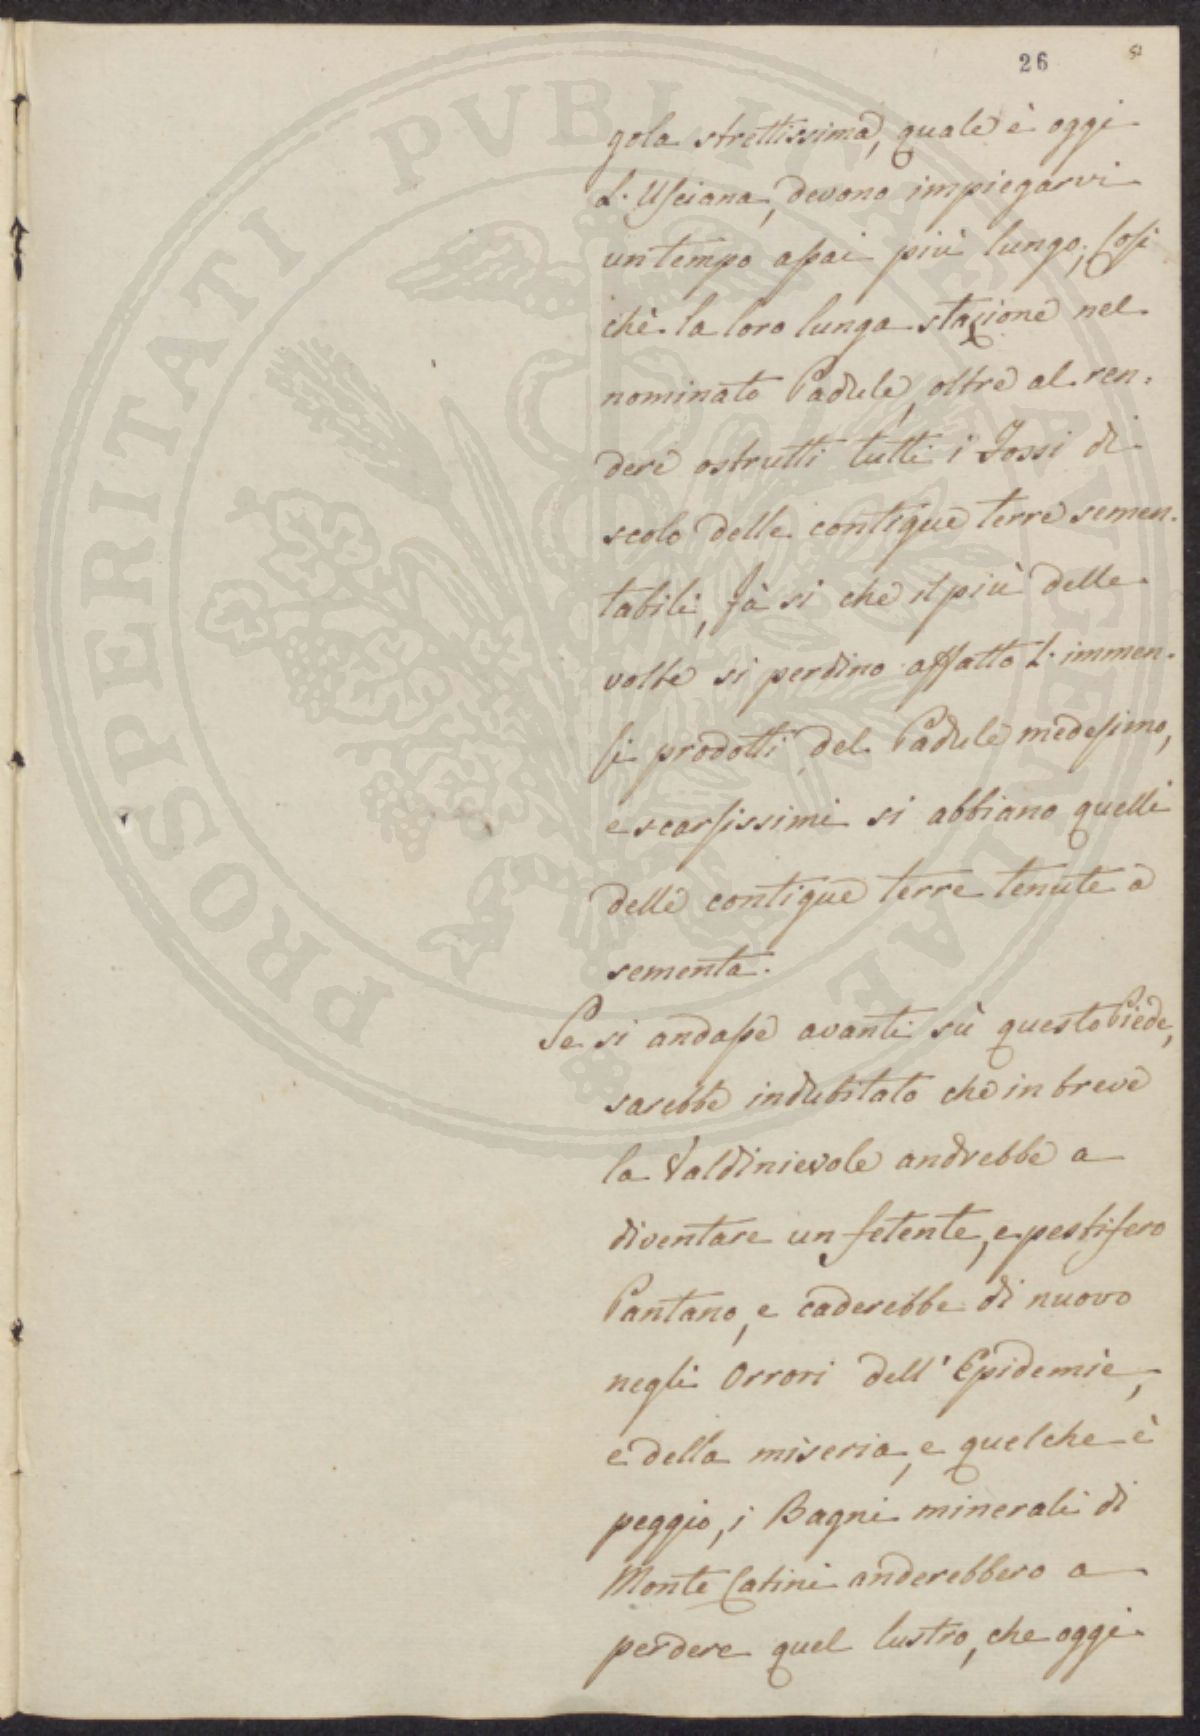 26
gola strettissima, quale è oggi
L'Usciana, devono impiegarvi
un tempo assai più lungo; Cosi
chè la loro lunga stazione nel
nominato Padule, oltre al ren-
dere ostrutti tutti i Fossi di
scolo delle contigue terre semen-
tabili, fà si che il più delle
volte si perdino affatto l'immen-
si prodotti del Padule medesimo,
e scarsissimi si abbiano quelli
delle contigue terre tenute a
sementa.
Se si andasse avanti sù questo Piede,
sarebbe indubitato che in breve
la Valdinievole andrebbe a
diventare un fetente, e pestifero
Pantano, e caderebbe di nuovo
negli Orrori dell'Epidemie,
e della miseria, e quelche è
peggio, i Bagni minerali di
Monte Catini anderebbero a
perdere quel lustro, che oggi
PROSPERITATI PUBLICAE AUGENDAE